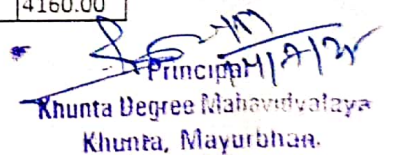 4160.00
Principal
Khunta Degree Mahavidyalaya
Khunta, Mayurbhan.